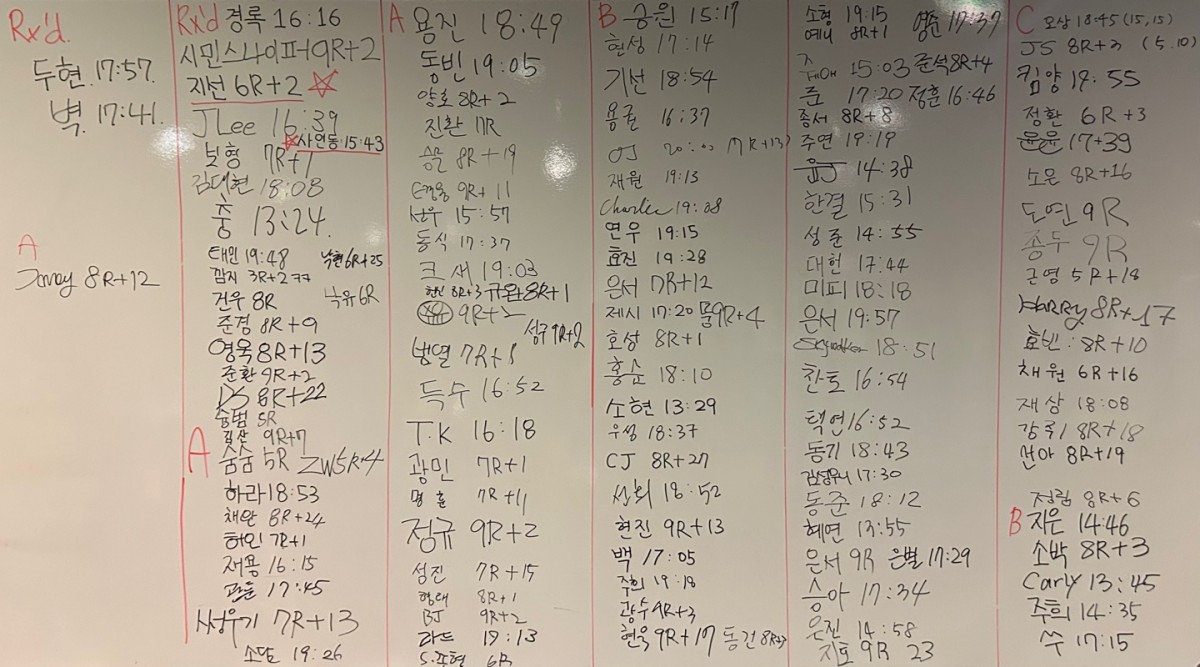 Rx'd.
두현. 17:57.
벽. 17:41.
A
8R+12
Rx'd 경록 16:16
시민스나이퍼 9R+2
지선 6R+2 ☆
JLee 16:39
☆사인동·15:43
보형 7R+1
김대현 18:08
충 13:24.
태민 19:48 낙현 6R+25
깜지 3R+2 ㅋㅋ
건우 8R 낙유 6R
준경 8R+9
영욱 8R+13
준환 9R+2
DS 8R+22
승범 5R
9R+7
A 숨숨 5R ZW5R+4
하라 18:53
채완 8R+24
허인 7R+1
재용 16:15
17:45
7R+13
소담 19:26
A 용진 18:49
동빈 19:05
양호 8R+2
진환 7R
승문 8R+19
9R+11
선우 15:57
동식 17:37
크새 19:03
현신 8R+3 규완 8R+1
9R+2
성규 9R+2
범열 7R+8
득수 16:52
T.K 16:18
광민 7R+1
명훈 7R+11
정규 9R+2
성진 7R+15
형태 8R+1
BJ 9R+2
라트 17:13
6R
B 승원 15:17
현성 17:14
기선 18:54
용굴 16:37
OJ 20:00 (7R+13)
재원 19:13
Charlee 19:08
연우 19:15
효진 19:28
은서 7R+12
제시 17:20 뭄 9R+4
호성 8R+1
홍슌 18:10
소현 13:29
우성 18:37
CJ 8R+27
상희 18:52
현진 9R+13
백 17:05
주희 19:18
광수 9R+3
현옥 9R+17 동건 8R+7
소형 19:15 영준 17:37
예니 8R+1
15:03 준석 8R+4
준 17:20 정훈 16:46
종서 8R+8
주연 19:19
14:38
한결 15:31
성준 14:55
대헌 17:44
미피 18:18
은서 19:57
18:51
찬토 16:54
택연 16:52
동기 18:43
17:30
동준 18:12
혜연 13:55
은서 9R 은별 17:29
승아 17:34
은진 14:58
지토 9R 23
C 오상 18:45 (15,15)
JS 8R+3 (5.10)
킴양 17:55
정환 6R+3
윤윤 17+39
소은 8R+16
도연 9R
종두 9R
근영 5R+18
Harrey 8R+17
효빈 : 8R+10
채원 6R+16
재상 18:08
강록1 8R+18
선아 8R+19
정림 8R+6
B 지은 14:46
소박 8R+3
Carly 13:45
주희 14:35
쑤 17:15